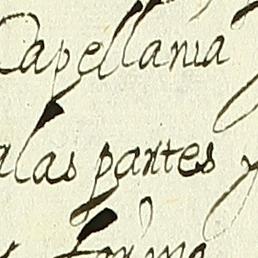 Capellania
alas partes y